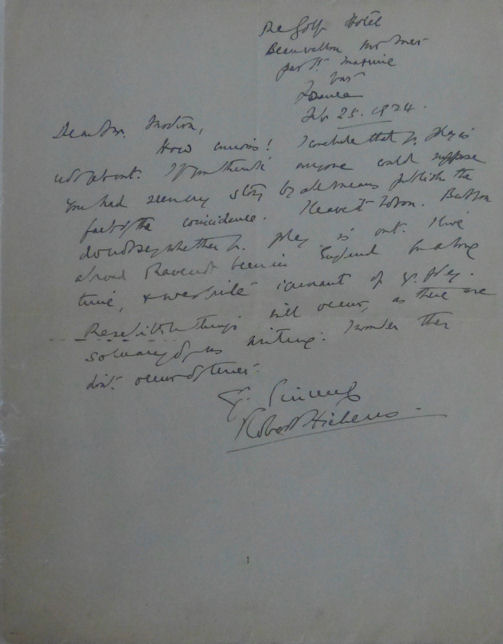 The Golf Hotel
Beauvallon sur Mer
par St. Maxime
Var
France
Feb 25. 1924.
Dear Mr. Morton,
How curious! I conclude that yr. play is
not about. If you think anyone will suppose
you had seen my story by all means publish the
fact of the coincidence. I leave it to you. But you
do not say whether yr. play is out. I live
abroad & have not been in England for a long
time, & was quite ignorant of yr. play.
These little things will occur, as there are
so many of us writing. I wonder they
don't occur oftener.
Yr. Sincerely
Robert Hichens